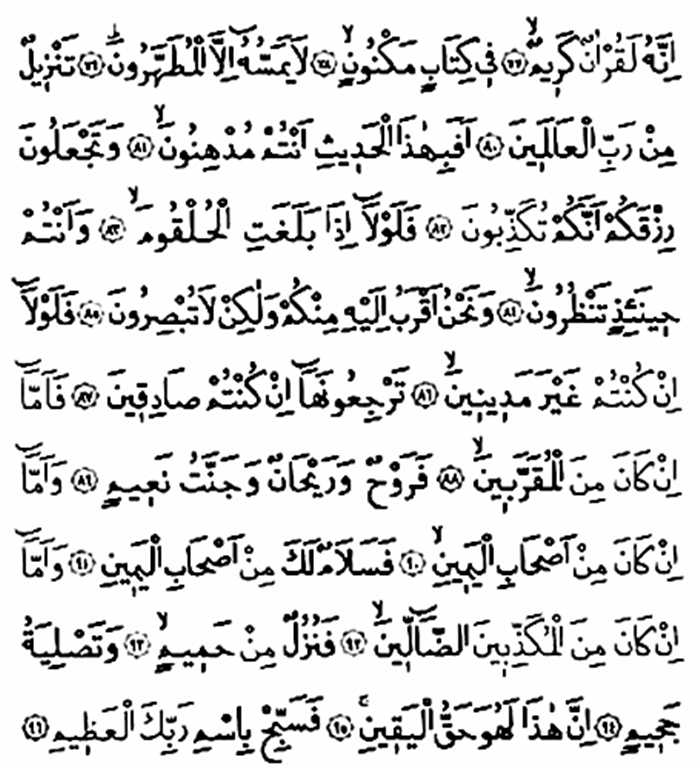 اِنَّهُ لَقُرْاٰنٌ كَرِيمٌۙ ﴿٧٧﴾ فِي كِتَابٍ مَكْنُونٍۙ ﴿٧٨﴾ لَا يَمَسُّهُٓ اِلَّا الْمُطَهَّرُونَۜ ﴿٧٩﴾ تَنْزِيلٌ
مِنْ رَبِّ الْعَالَمِينَ ﴿٨٠﴾ اَفَبِهٰذَا الْحَدِيثِ اَنْتُمْ مُدْهِنُونَۙ ﴿٨١﴾ وَتَجْعَلُونَ
رِزْقَكُمْ اَنَّكُمْ تُكَذِّبُونَ ﴿٨٢﴾ فَلَوْلَٓا اِذَا بَلَغَتِ الْحُلْقُومَۙ ﴿٨٣﴾ وَاَنْتُمْ
حِينَئِذٍ تَنْظُرُونَۙ ﴿٨٤﴾ وَنَحْنُ اَقْرَبُ اِلَيْهِ مِنْكُمْ وَلٰكِنْ لَا تُبْصِرُونَ ﴿٨٥﴾ فَلَوْلَٓا
اِنْ كُنْتُمْ غَيْرَ مَدِينِينَۙ ﴿٨٦﴾ تَرْجِعُونَهَٓا اِنْ كُنْتُمْ صَادِقِينَ ﴿٨٧﴾ فَاَمَّٓا
اِنْ كَانَ مِنَ الْمُقَرَّبِينَۙ ﴿٨٨﴾ فَرَوْحٌ وَرَيْحَانٌ وَجَنَّتُ نَعِيمٍ ﴿٨٩﴾ وَاَمَّٓا
اِنْ كَانَ مِنْ اَصْحَابِ الْيَمِينِۙ ﴿٩٠﴾ فَسَلَامٌ لَكَ مِنْ اَصْحَابِ الْيَمِينِ ﴿٩١﴾ وَاَمَّٓا
اِنْ كَانَ مِنَ الْمُكَذِّبِينَ الضَّٓالِّينَۙ ﴿٩٢﴾ فَنُزُلٌ مِنْ حَمِيمٍۙ ﴿٩٣﴾ وَتَصْلِيَةُ
جَحِيمٍ ﴿٩٤﴾ اِنَّ هٰذَا لَهُوَ حَقُّ الْيَقِينِۚ ﴿٩٥﴾ فَسَبِّحْ بِاسْمِ رَبِّكَ الْعَظِيمِ ﴿٩٦﴾